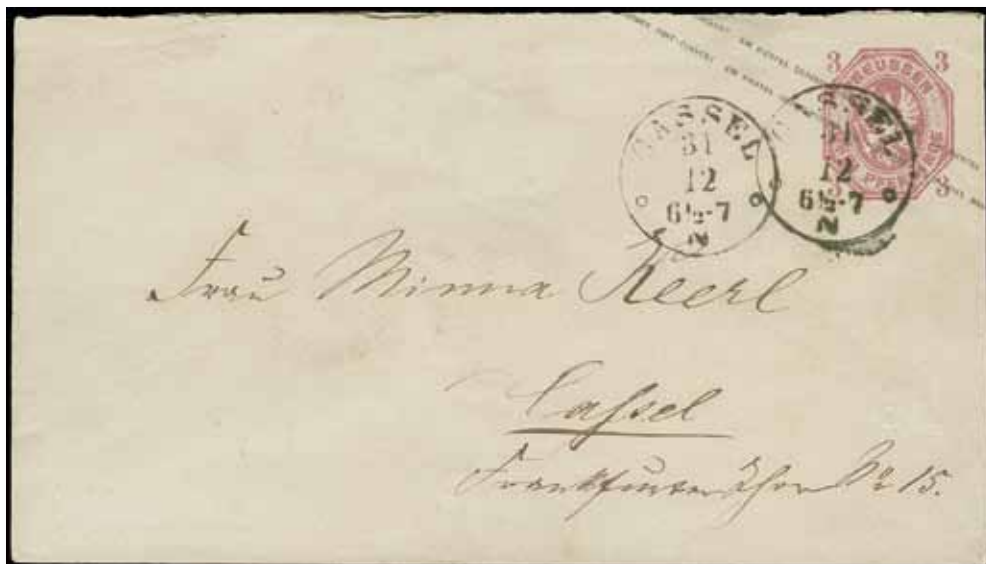 3 PREUSSEN 3
3 3
CASSEL
31
12
6½-7
N
CASSEL
31
12
6½-7
N
Frau Minna Keerl
Caſsel
Frankfurter Thor No 15.